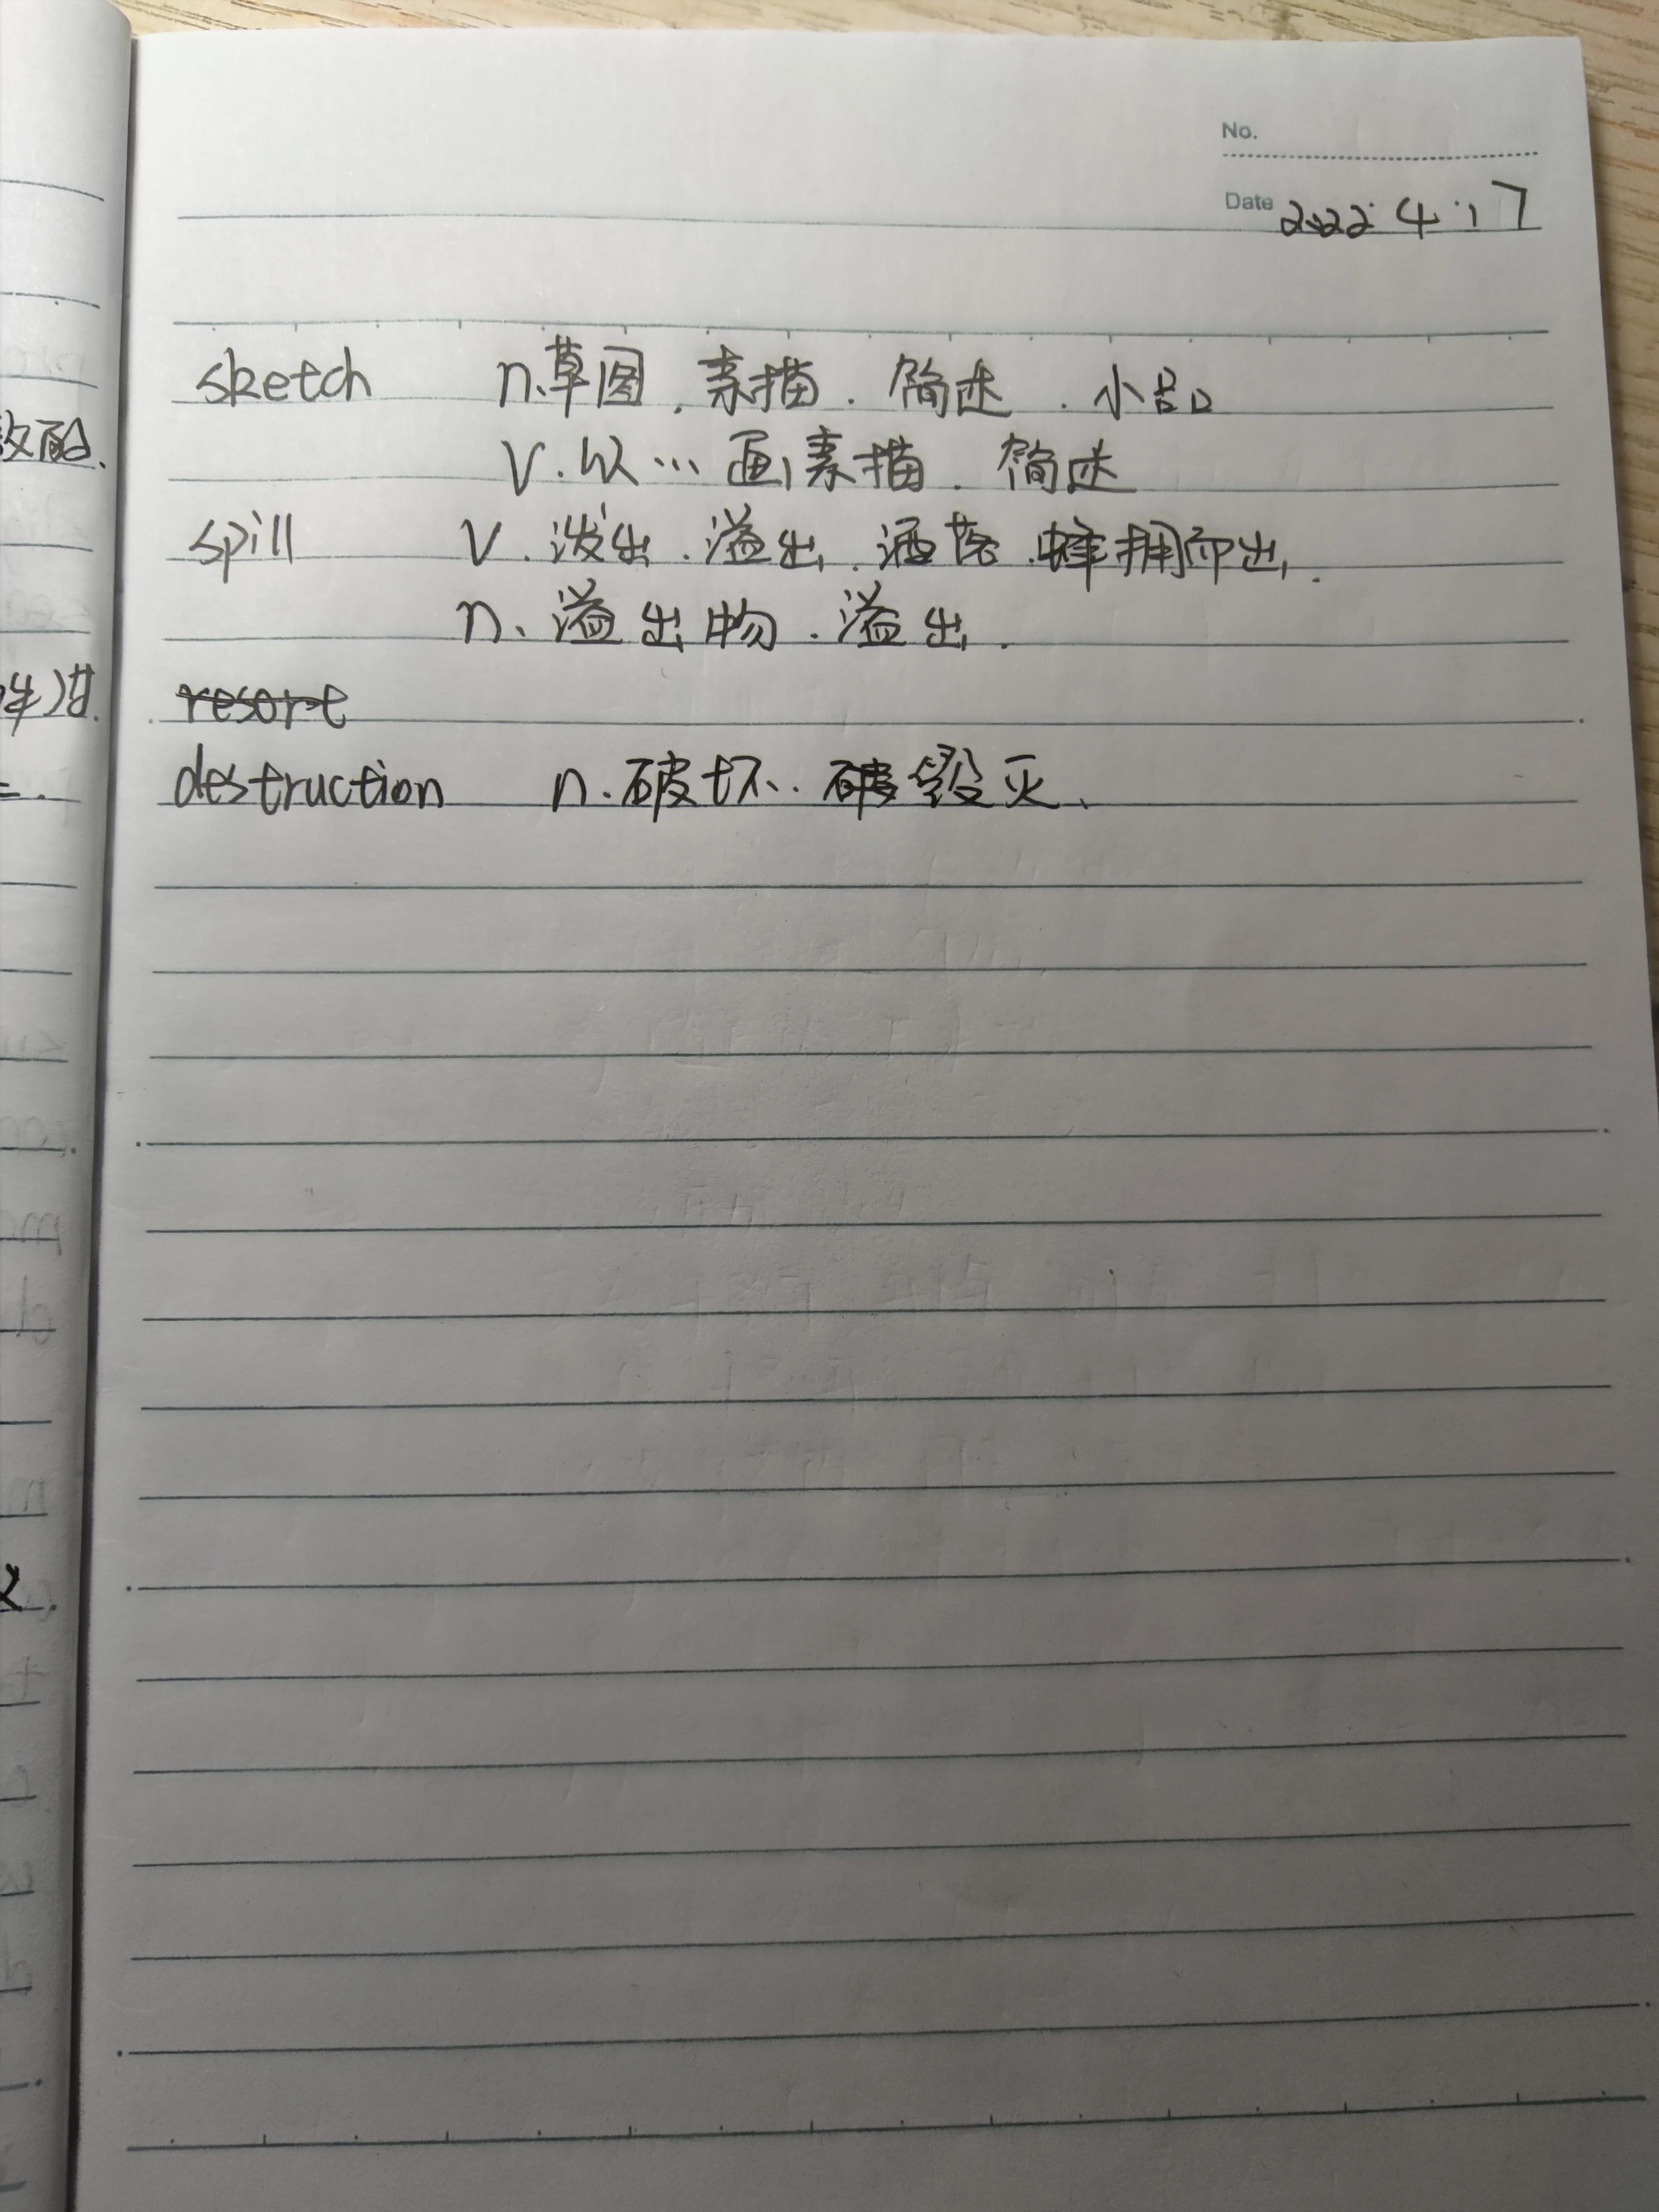 No.
Date 2022.4.17
sketch n.草图.素描.简述.小品
v.以…画素描.简述
spill v.泼出.溢出.洒落.蜂拥而出.
n.溢出物.溢出.
resort
destruction n.破坏.毁灭.